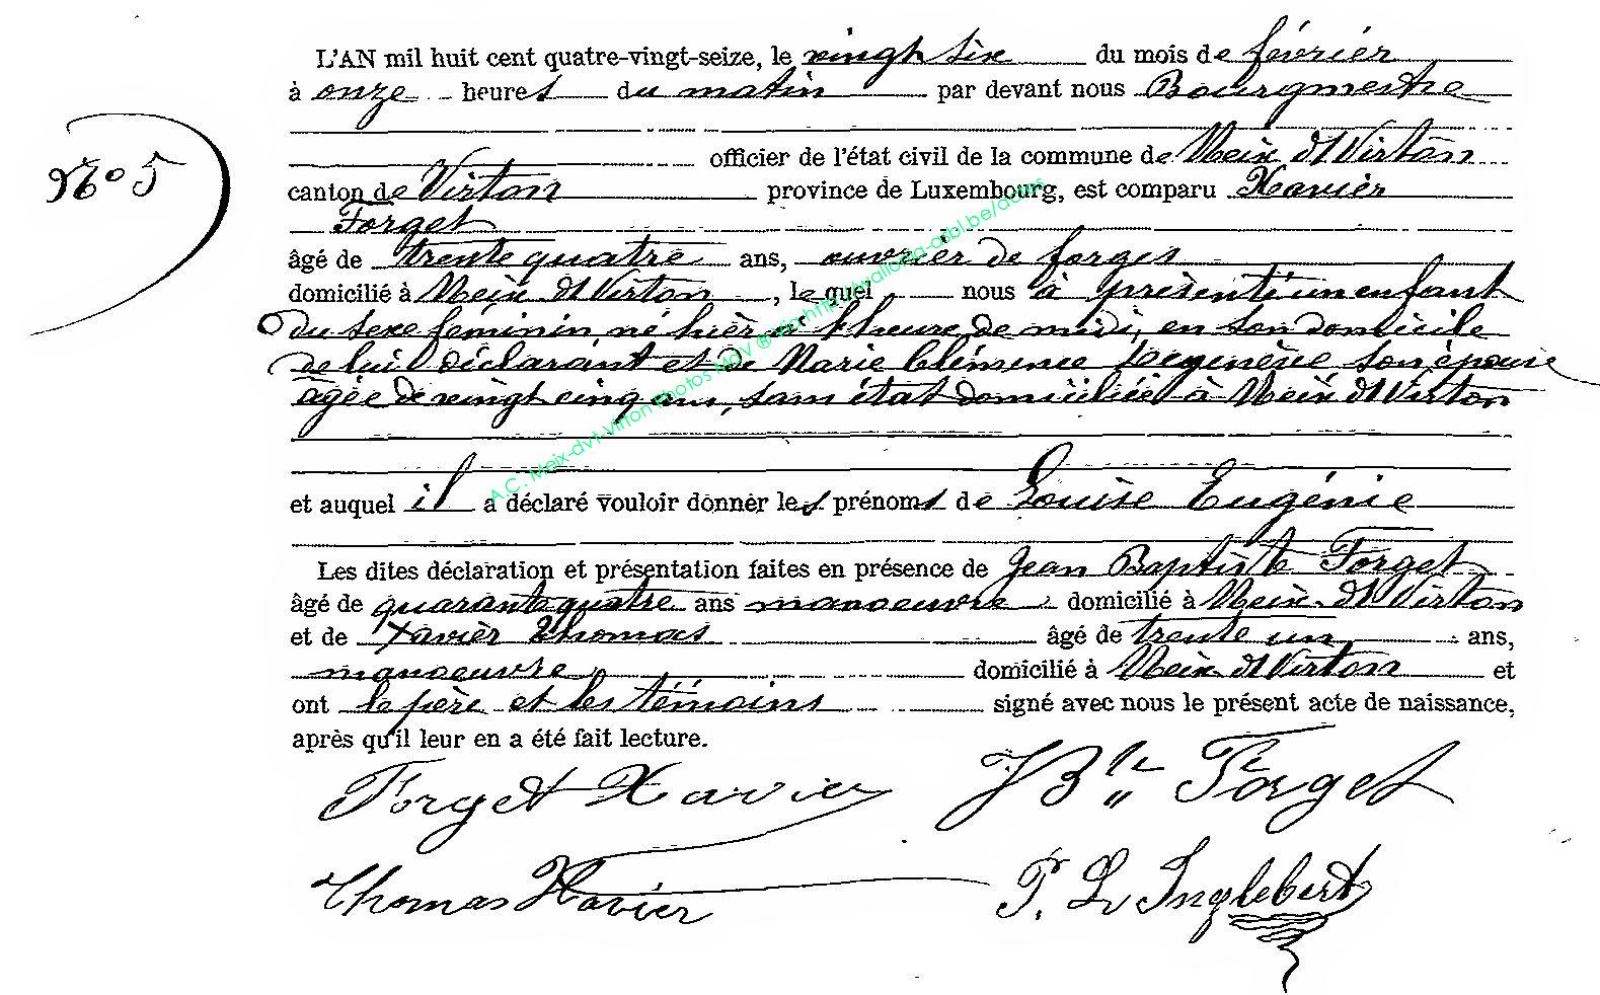 L'AN mil huit cent quatre-vingt-seize, le vingt six du mois de février
à onze heures du matin par devant nous Bourgmestre
officier de l'état civil de la commune de Meix dt Virton
N° 5
canton de Virton province de Luxembourg, est comparu Xavier
Forget
âgé de trente quatre ans, ouvrier de forges
domicilié à Meix dt Virton, le quel nous à présenté un enfant
du sexe féminin, né hièr à heure de midi, en son domicile
de lui déclarant et de Marie Clémence son épouse
âgée de vingt cinq ans, sans état domiciliée à Meix dt Virton
et auquel il a déclaré vouloir donner les prénoms de Louise Eugénie
Les dites déclaration et présentation faites en présence de Jean Baptiste Forget
âgé de quarante quatre ans manoeuvre domicilié à Meix dt Virton
et de Xavier Thomas âgé de trente un ans,
manoeuvre domicilié à Meix dt Virton et
ont le père et les témoins signé avec nous le présent acte de naissance,
après qu'il leur en a été fait lecture.
Forget Xavier JBte Forget
Thomas Xavier P. L. Inglebert
A.C. Meix-dvt-Virton Photos MdV ®